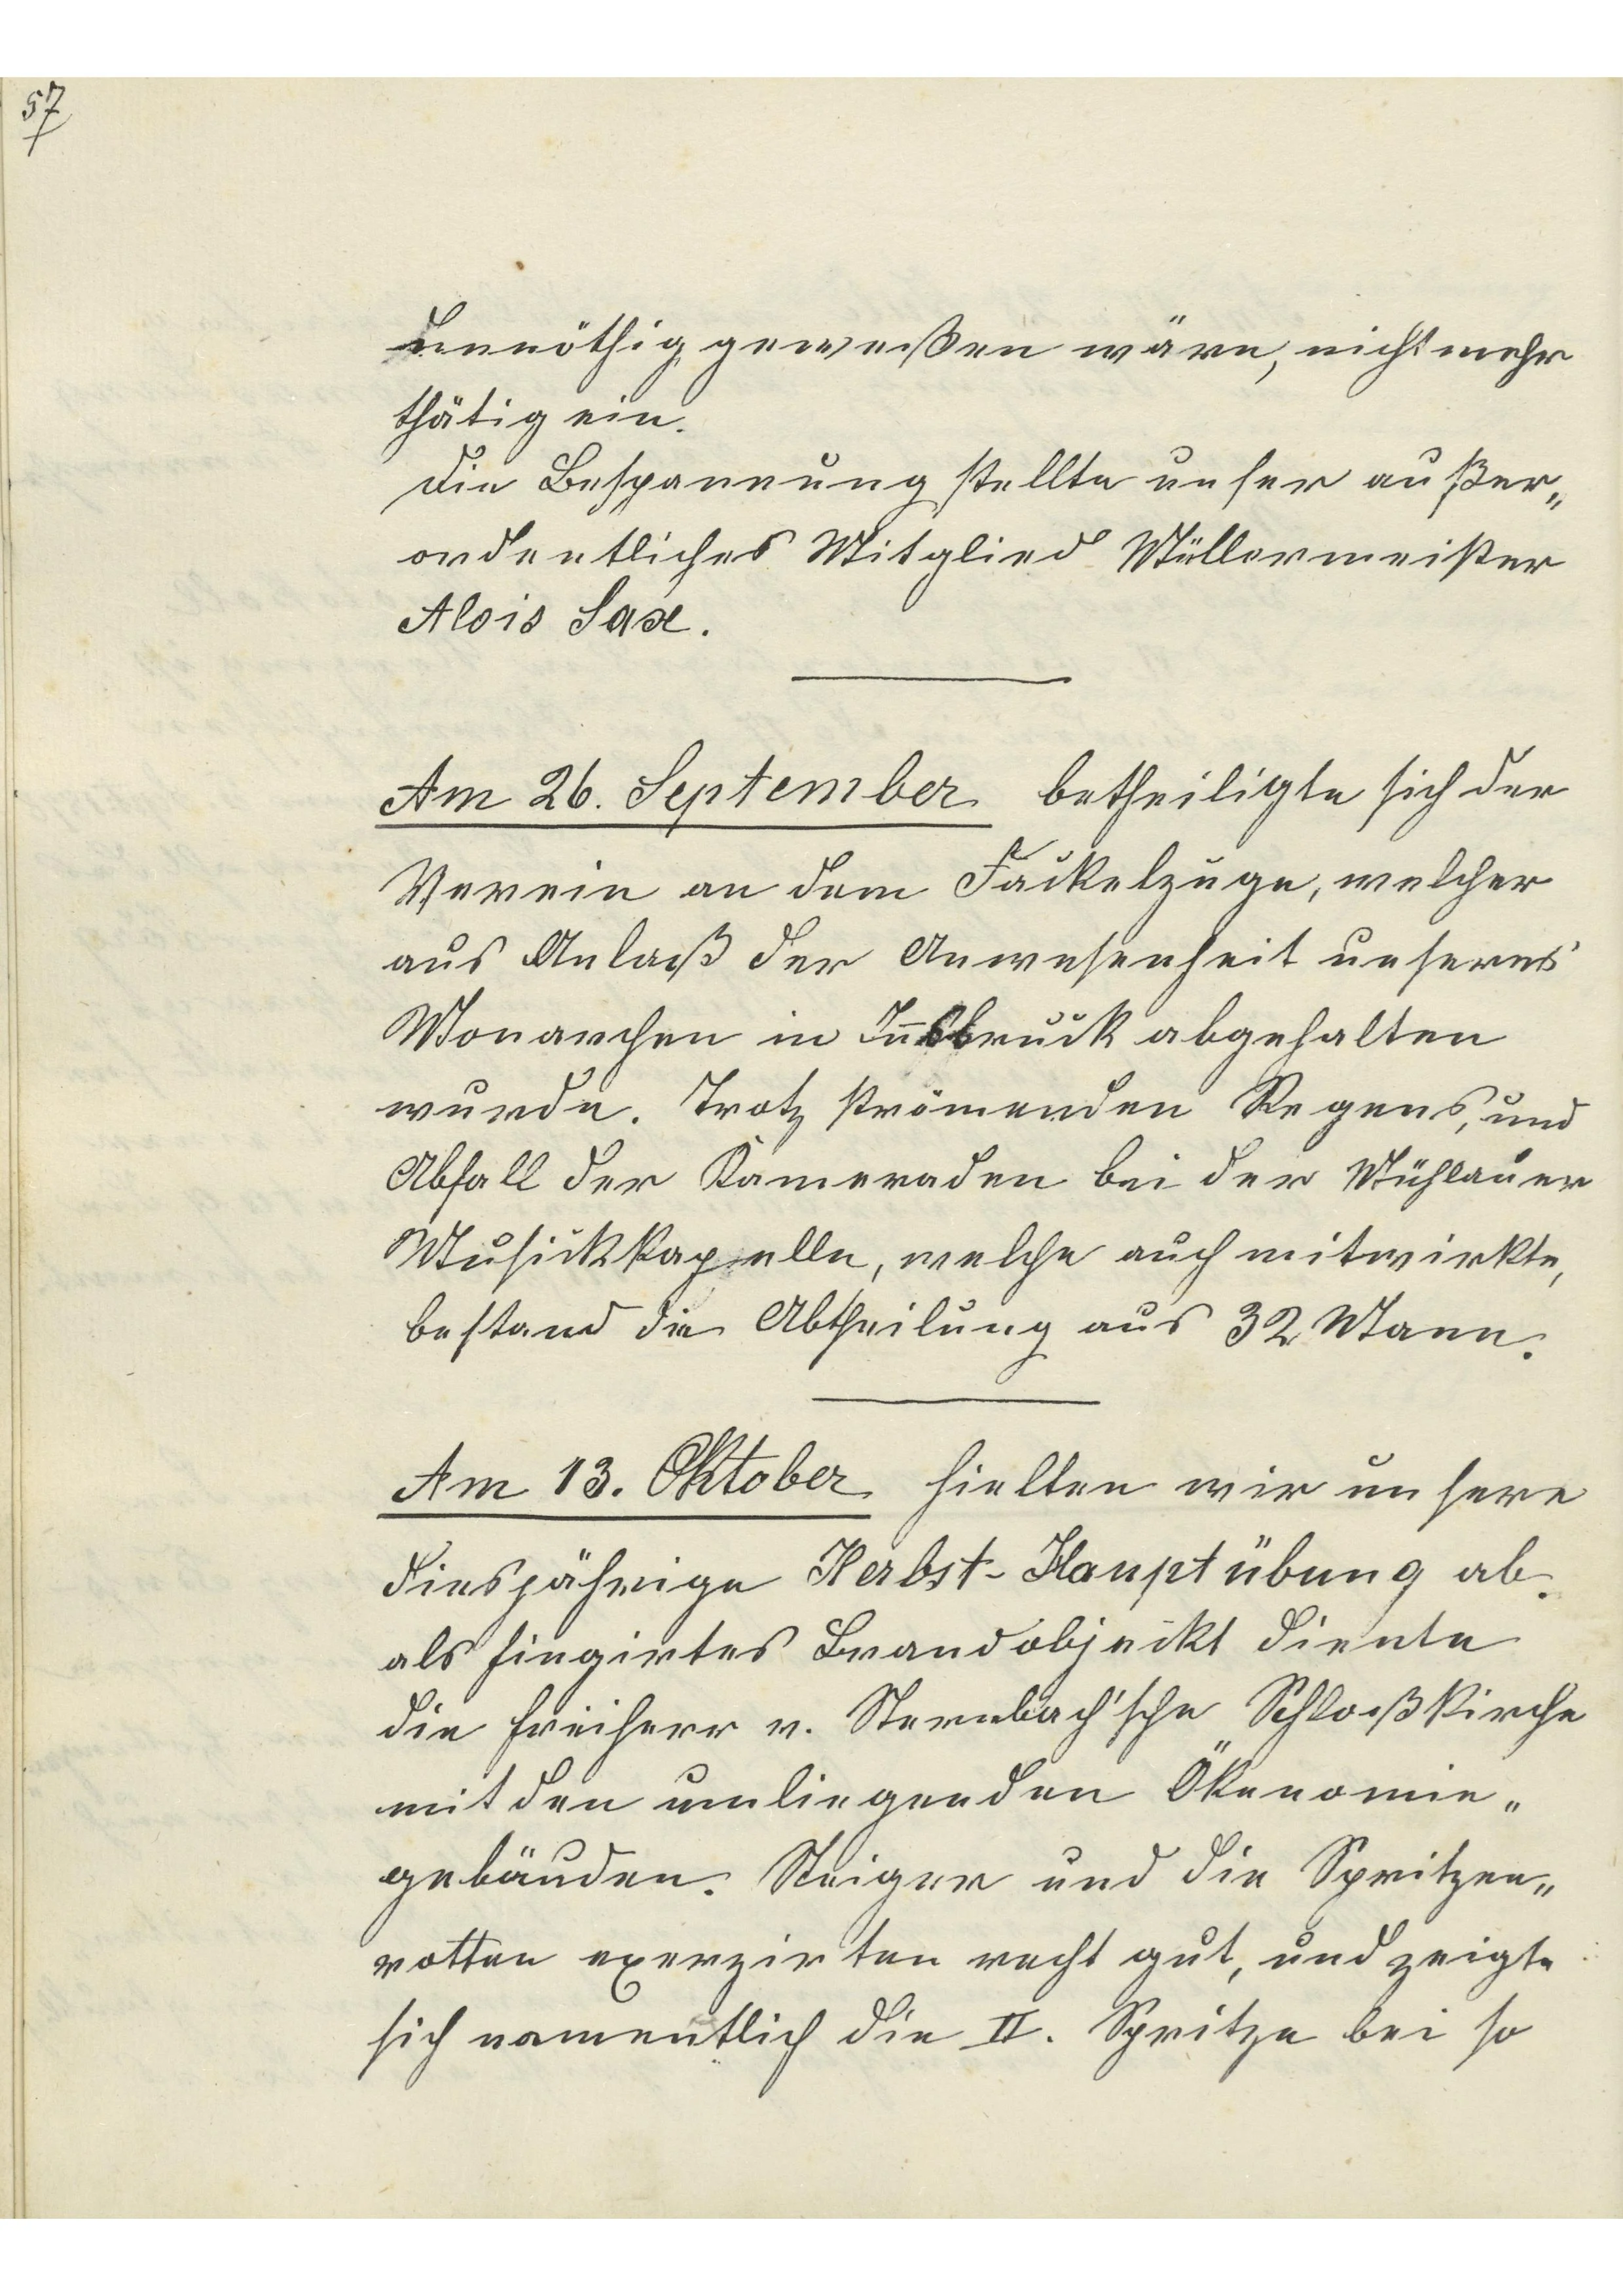 57
unnöthig geweißen wäre, nicht mehr
thätig ein.
Die Bespannung stellte unser außer„
ordentliches Mitglied Müllermeister
Alois Sax.
Am 26. September betheiligte sich der
Verein an dem Fackelzuge, welcher
aus Anlaß der Anwesenheit unseres
Monarchen in Innsbruck abgehalten
wurde. Trotz strömenden Regens, und
Abfall der Kameraden bei der Mühlauer
Musickkapelle, welche auch mitwirkte,
bestand die Abtheilung aus 32 Mann.
Am 13. Oktober hielten wir unsere
diesjährige Herbst-Hauptübung ab.
als fingirtes Brandobjeckt diente
die Freiherr v. Sternbach'sche Schloßkirche
mit den umliegenden Ökenomie„
gebäuden. Steiger und die Spritzen„
rotten exerzirten recht gut, und zeigte
sich namentlich die II. Spritze bei so